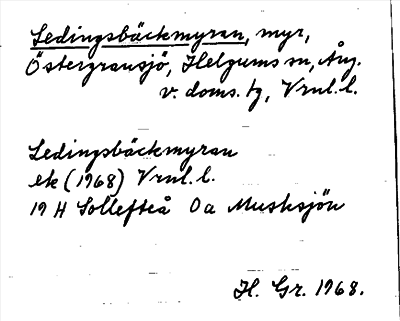 Ledingsbäckmyran, myr,
Östergransjö, Helgums sn, Ång.
v. doms. tg, Vrnl. l.
Ledingsbäckmyran
ek (1968) Vrnl. l.
19 H Sollefteå 0a Musksjön
H. Gr. 1968.